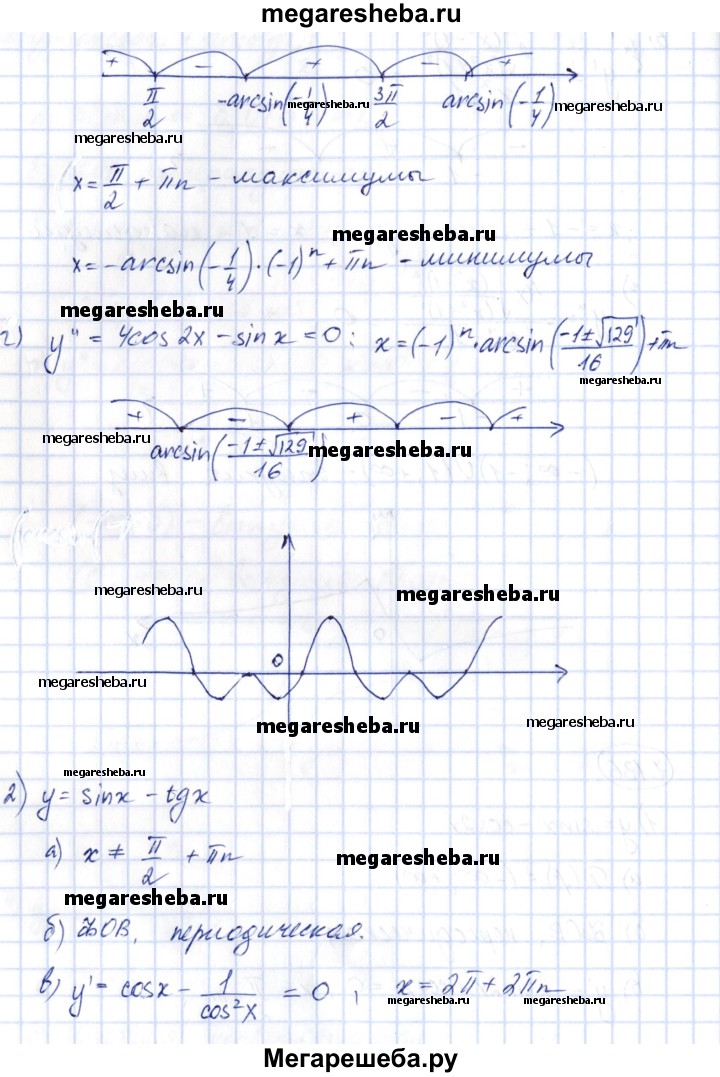 megaresheba.ru
+ − + − +
π/2 -arcsin(-1/4) 3π/2 arcsin(-1/4)
megaresheba.ru megaresheba.ru
megaresheba.ru
x = π/2 + πn - максимумы
megaresheba.ru
x = -arcsin(-1/4)·(-1)^n + πn - минимумы
megaresheba.ru
г) y'' = 4cos2x - sinx = 0: x = (-1)^n·arcsin((-1±√129)/16) + πn
megaresheba.ru
+ − + − +
megaresheba.ru
arcsin((-1±√129)/16) megaresheba.ru
megaresheba.ru megaresheba.ru
0
megaresheba.ru
megaresheba.ru megaresheba.ru
megaresheba.ru
2) y = sinx - tgx
а) x ≠ π/2 + πn megaresheba.ru
megaresheba.ru
б) ЗОВ, периодическая.
в) y' = cosx - 1/cos²x = 0, x = 2π + 2πn
megaresheba.ru megaresheba.ru
Мегарешеба.ру